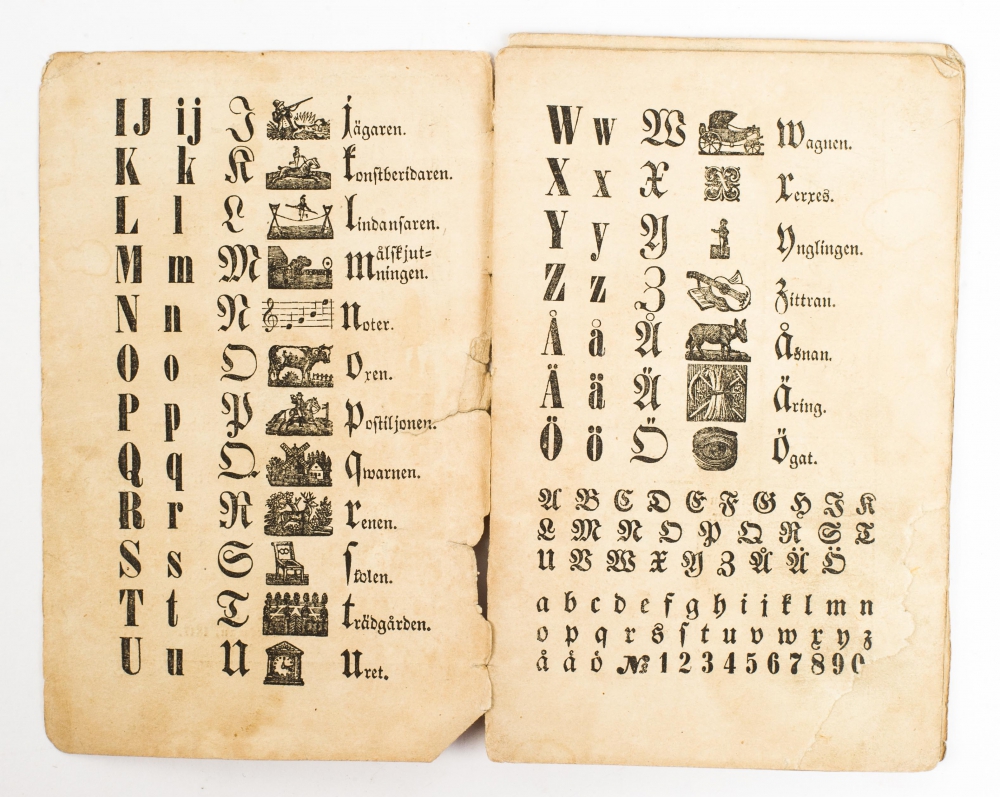 IJ ij I jägaren.
K k K konstberidaren.
L l L lindansaren.
M m M målskjut=
ningen.
N n N noter.
O o O oxen.
P p P postiljonen.
Q q Q qwarnen.
R r R renen.
S s S stolen.
T t T trädgården.
U u U uret.
W w W wagnen.
X x X xerxes.
Y y Y ynglingen.
Z z Z zittran.
Å å Å åsnan.
Ä ä Ä äring.
Ö ö Ö ögat.
A B C D E F G H I K
L M N O P Q R S T
U V W X Y Z Å Ä Ö
a b c d e f g h i j k l m n
o p q r s ſ t u v w x y z
å ä ö № 1 2 3 4 5 6 7 8 9 0